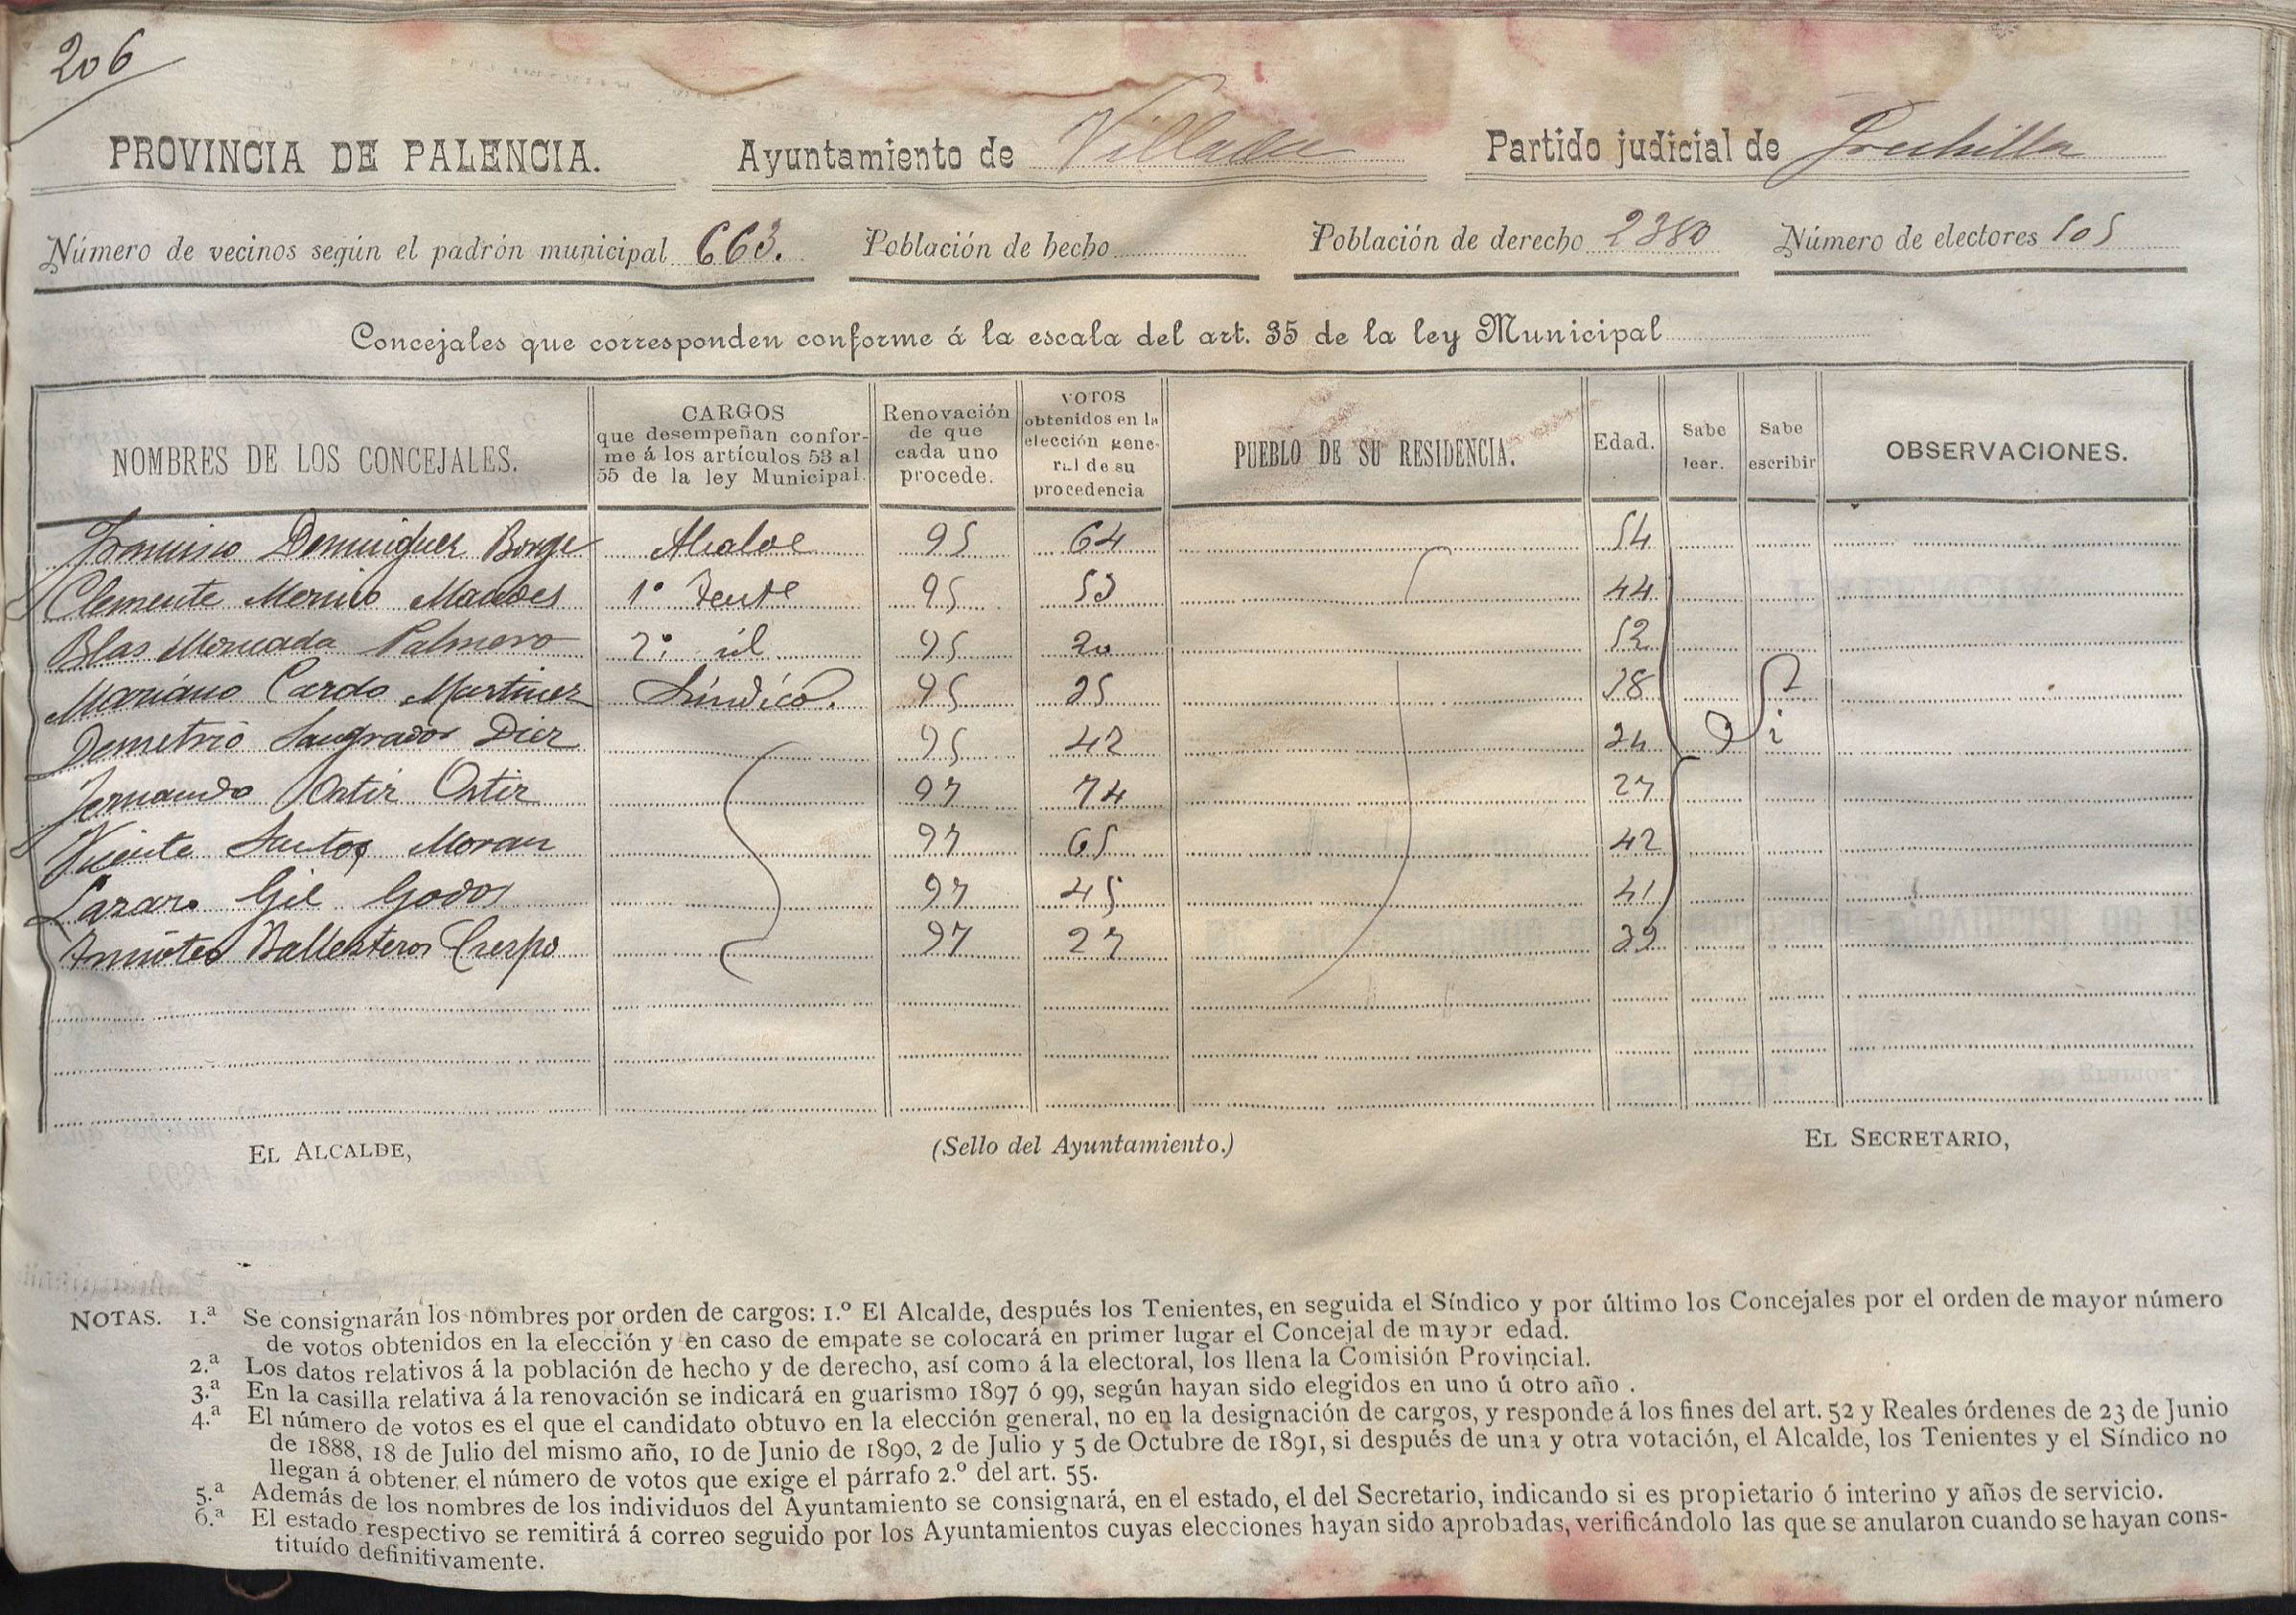 206
PROVINCIA DE PALENCIA. Ayuntamiento de Villada Partido judicial de Frechilla
Número de vecinos según el padrón municipal 663. Población de hecho Población de derecho 2380 Número de electores 505
Concejales que corresponden conforme á la escala del art. 35 de la ley Municipal
NOMBRES DE LOS CONCEJALES. CARGOS que desempeñan conforme á los artículos 53 al 55 de la ley Municipal. Renovación de que cada uno procede. VOTOS obtenidos en la elección general de su procedencia PUEBLO DE SU RESIDENCIA. Edad. Sabe leer. Sabe escribir OBSERVACIONES.
Francisco Dominguez Borge Alcalde 95 64 54
Clemente Merino 1º Tente 95 53 44
Blas Moncada Palmero 2º id 95 20 52
Mariano Pardo Martinez Síndico. 95 25 38
Demetrio Sangrador Diez 95 42 34
Si
Fernando Ortiz Ortiz 97 74 27
Vicente Santos Moran 97 65 42
Lazaro Gil Godos 97 45 41
Ballesteros Crespo 97 27 39
EL ALCALDE, (Sello del Ayuntamiento.) EL SECRETARIO,
NOTAS. 1.ª Se consignarán los nombres por orden de cargos: 1.º El Alcalde, después los Tenientes, en seguida el Síndico y por último los Concejales por el orden de mayor número
de votos obtenidos en la elección y en caso de empate se colocará en primer lugar el Concejal de mayor edad.
2.ª Los datos relativos á la población de hecho y de derecho, así como á la electoral, los llena la Comisión Provincial.
3.ª En la casilla relativa á la renovación se indicará en guarismo 1897 ó 99, según hayan sido elegidos en uno ú otro año .
4.ª El número de votos es el que el candidato obtuvo en la elección general, no en la designación de cargos, y responde á los fines del art. 52 y Reales órdenes de 23 de Junio
de 1888, 18 de Julio del mismo año, 10 de Junio de 1890, 2 de Julio y 5 de Octubre de 1891, si después de una y otra votación, el Alcalde, los Tenientes y el Síndico no
llegan á obtener el número de votos que exige el párrafo 2.º del art. 55.
5.ª Además de los nombres de los individuos del Ayuntamiento se consignará, en el estado, el del Secretario, indicando si es propietario ó interino y años de servicio.
6.ª El estado respectivo se remitirá á correo seguido por los Ayuntamientos cuyas elecciones hayan sido aprobadas, verificándolo las que se anularon cuando se hayan cons-
tituído definitivamente.